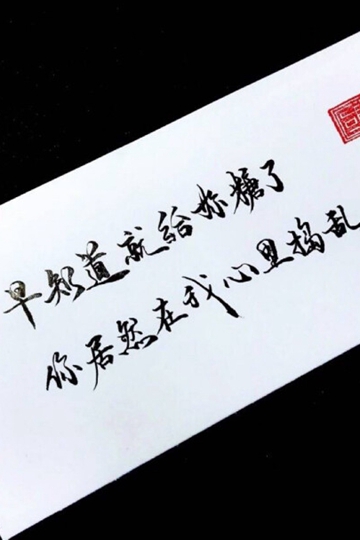 早知道就给你糖了
你居然在我心里捣乱